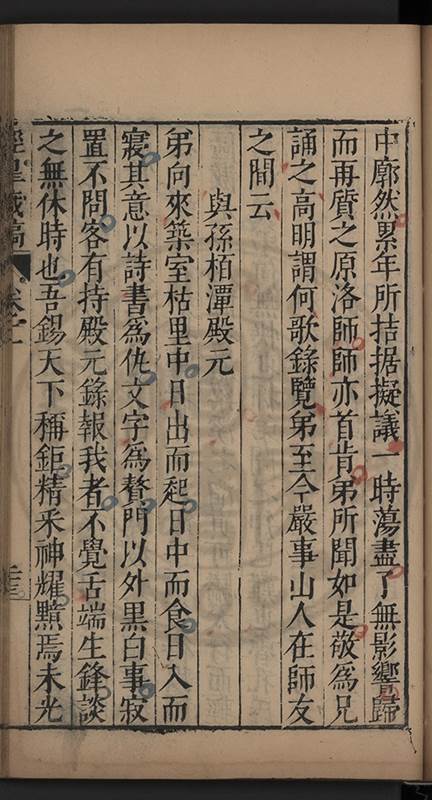 中廓然累年所拮据擬議一時蕩盡了無影響歸
而再質之原洛師師亦首肯弟所聞如是敬為兄
誦之高明謂何歌錄覽弟至今嚴事山人在師友
之間云
與孫栢潭殿元
弟向來築室枯里中日出而起日中而食日入而
寢其意以詩書為仇文字為贅門以外黑白事寂
置不問客有持殿元錄報我者不覺舌端生鋒談
之無休時也吾錫天下稱鉅精釆神耀黯焉未光